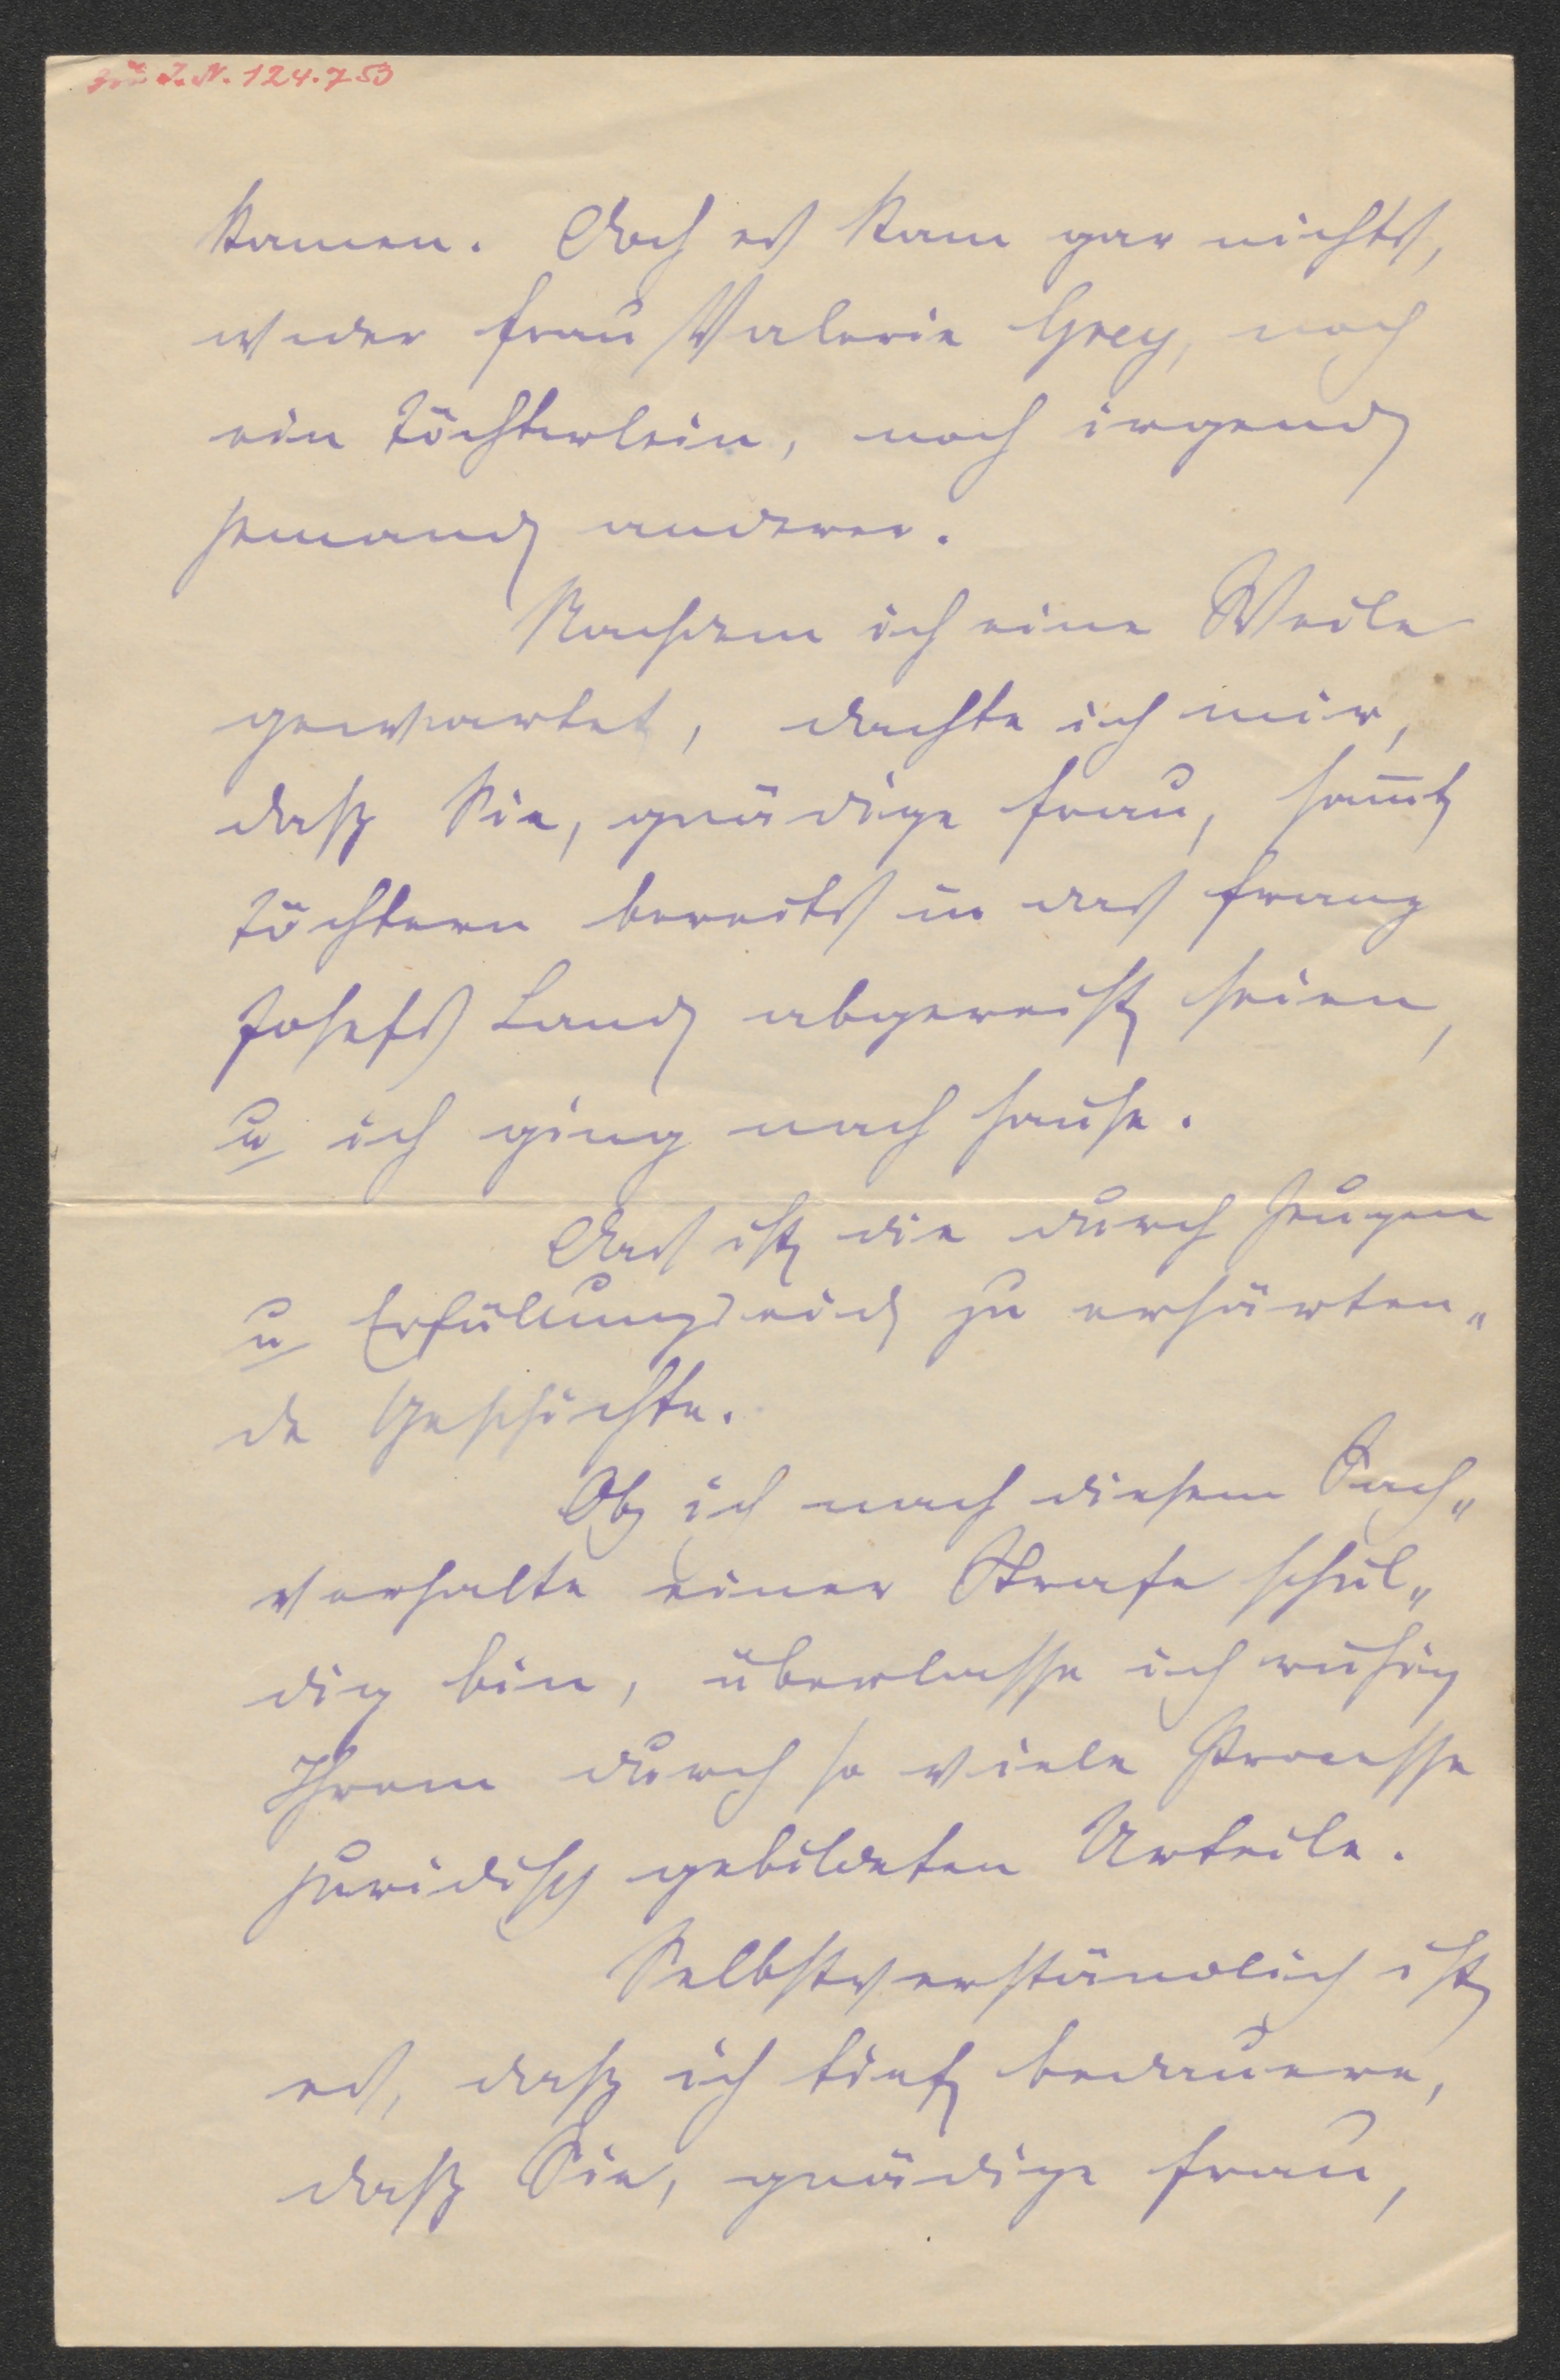 zu I. N. 124.753
kamen. Doch es kam gar nichts,
weder Frau Valerie Grey, noch
ein Töchterlein, noch irgend
jemand anderer.
Nachdem ich eine Weile
gewartet, dachte ich mir,
daß Sie, gnädige Frau, sam̄t
Töchtern bereits in das Franz
Josefs Land abgereist seien,
u ich ging nach Hause.
Das ist die durch Zeugen
u Erfüllungseid zu erhärten„
de Geschichte.
Ob ich nach diesem Sach„
verhalte einer Strafe schul„
dig bin, überlasse ich ruhig
Ihrem durch so viele Processe
juridisch gebildeten Urteile.
Selbstverständlich ist
es, daß ich tief bedauere,
daß Sie, gnädige Frau,